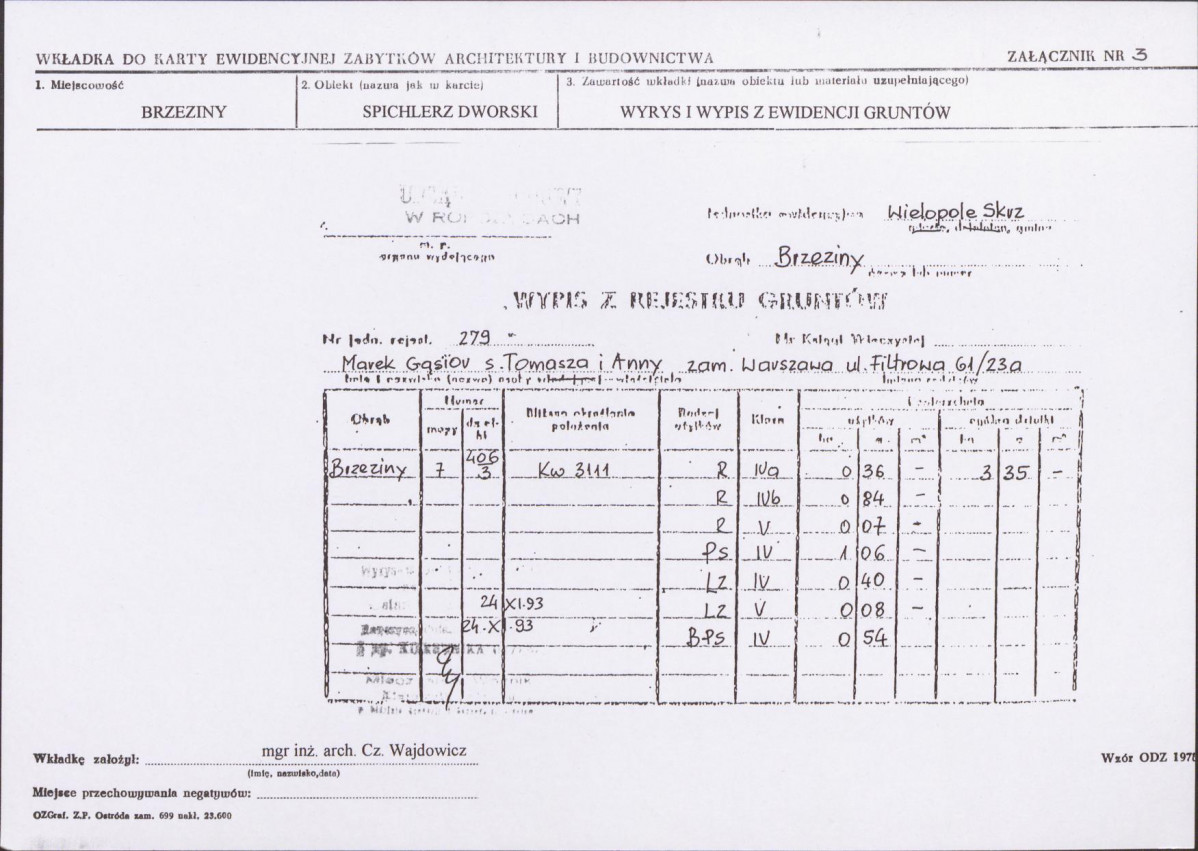 WKŁADKA DO KARTY EWIDENCYJNEJ ZABYTKÓW ARCHITEKTURY I BUDOWNICTWA ZAŁĄCZNIK NR 3
1. Miejscowość 2. Obiekt (nazwa jak w karcie) 3. Zawartość wkładki (nazwa obiektu lub materiału uzupełniającego)
BRZEZINY SPICHLERZ DWORSKI WYRYS I WYPIS Z EWIDENCJI GRUNTÓW
Jednostka ewidencyjna Wielopole Skrz
m. p.
organu wydającego
Obręb Brzeziny
nazwa lub numer
WYPIS Z REJESTRU GRUNTÓW
Nr jedn. rejest. 279 Nr Księgi Wieczystej
Marek Gąsior s. Tomasza i Anny zam. Warszawa ul. Filtrowa 61/23a
Obręb Numer Bliższe określenie położenia Rodzaj użytków Klasa Powierzchnia
mapy działki użytków ogólna działki
ha a m² ha a m²
Brzeziny 7 406/3 Kw 3111 R IVa 0 36 – 3 35 –
R IVb 0 84 –
R V 0 07 –
Ps IV 1 06 –
Lz IV 0 40 –
24 XI.93 Lz V 0 08 –
24.XI.93 B-Ps IV 0 54
Wkładkę założył: mgr inż. arch. Cz. Wajdowicz Wzór ODZ 1978
(imię, nazwisko, data)
Miejsce przechowywania negatywów:
OZGraf. Z.P. Ostróda zam. 699 nakł. 23.600